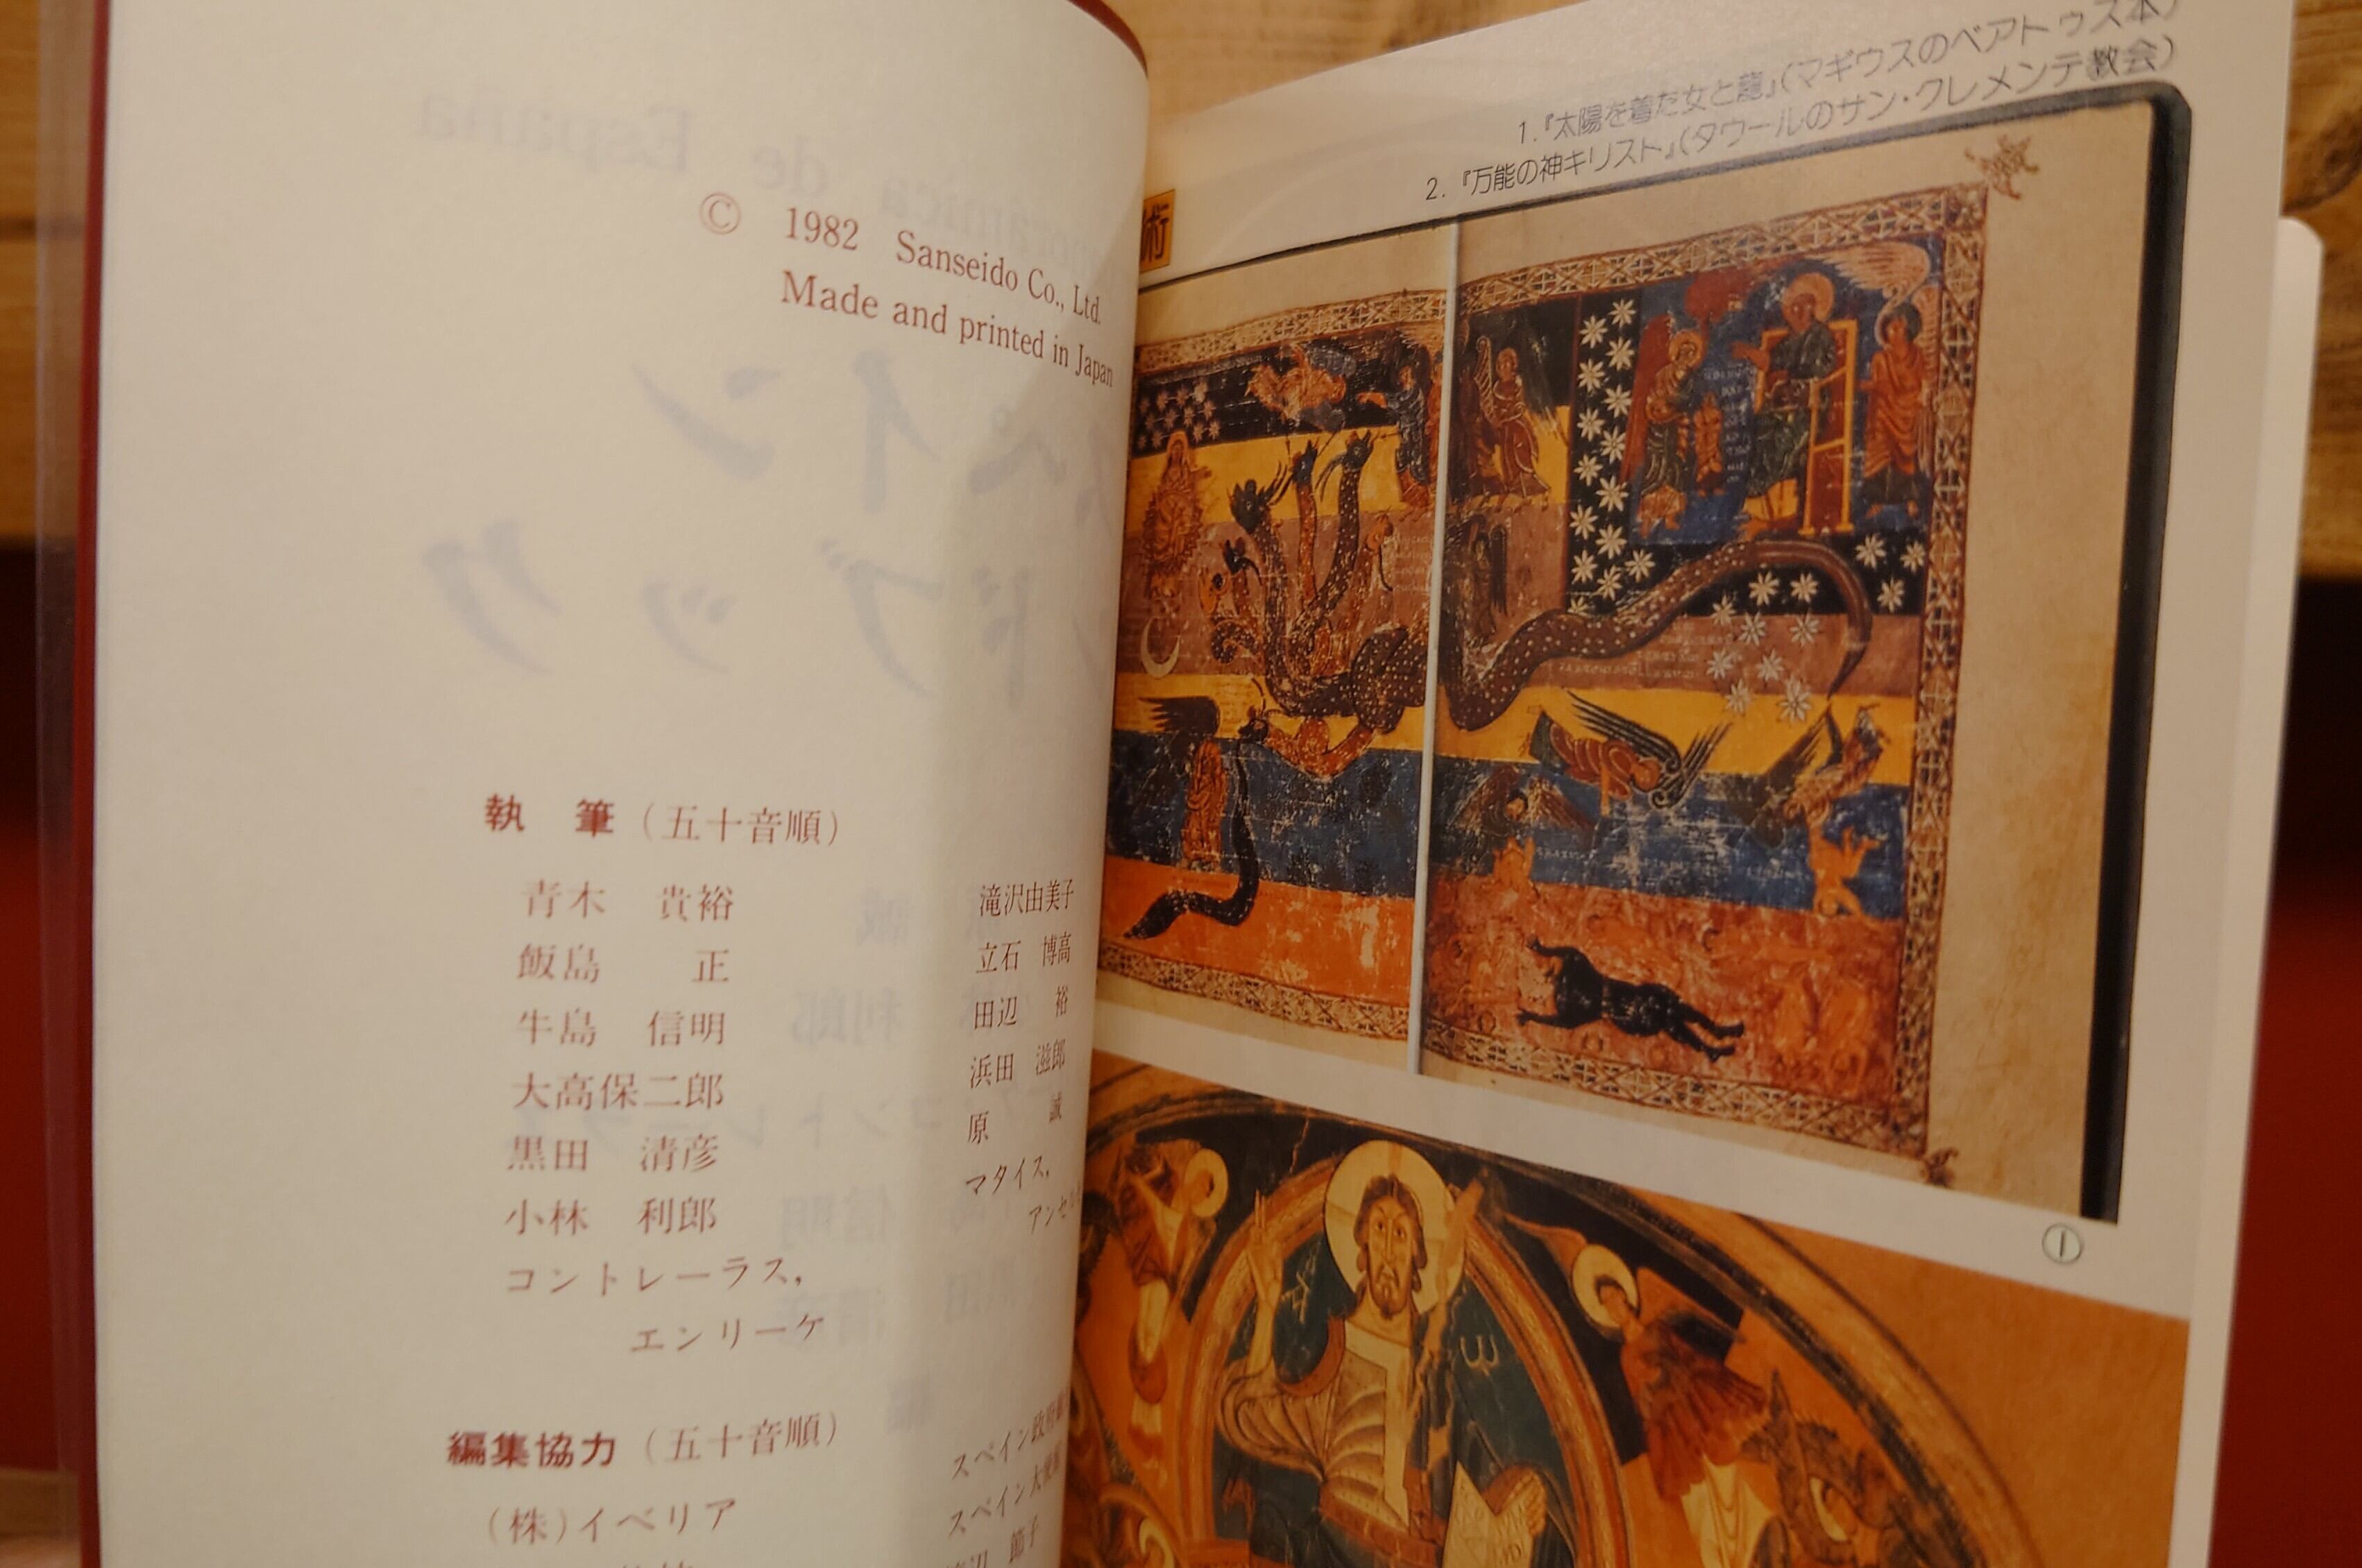 © 1982 Sanseido Co., Ltd.
Made and printed in Japan
執 筆 (五十音順)
青木 貴裕
飯島 正
牛島 信明
大高保二郎
黒田 清彦
小林 利郎
コントレーラス,
エンリーケ
滝沢由美子
立石 博高
田辺 裕
浜田 滋郎
原 誠
マタイス,
アンセ
編集協力 (五十音順)
(株)イベリア
スペイン政府
スペイン大使
節子
術
1.『太陽を着た女と龍』(マギウスのベアトゥス本)
2.『万能の神キリスト』(タウールのサン・クレメンテ教会)
①